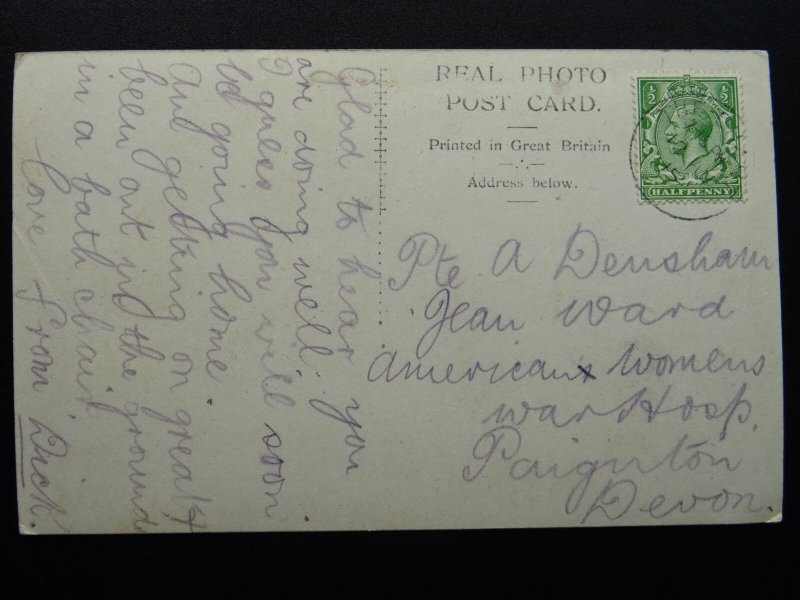 Glad to hear you
are doing well
I guess you will soon
be going home
And getting on great
been out in the grounds
in a bath chair
love from Dick.
REAL PHOTO
POST CARD.
Printed in Great Britain
Address below.
½ ½
HALFPENNY
Pte A Densham
Jean Ward
American Womens
War Hosp.
Paignton
Devon.